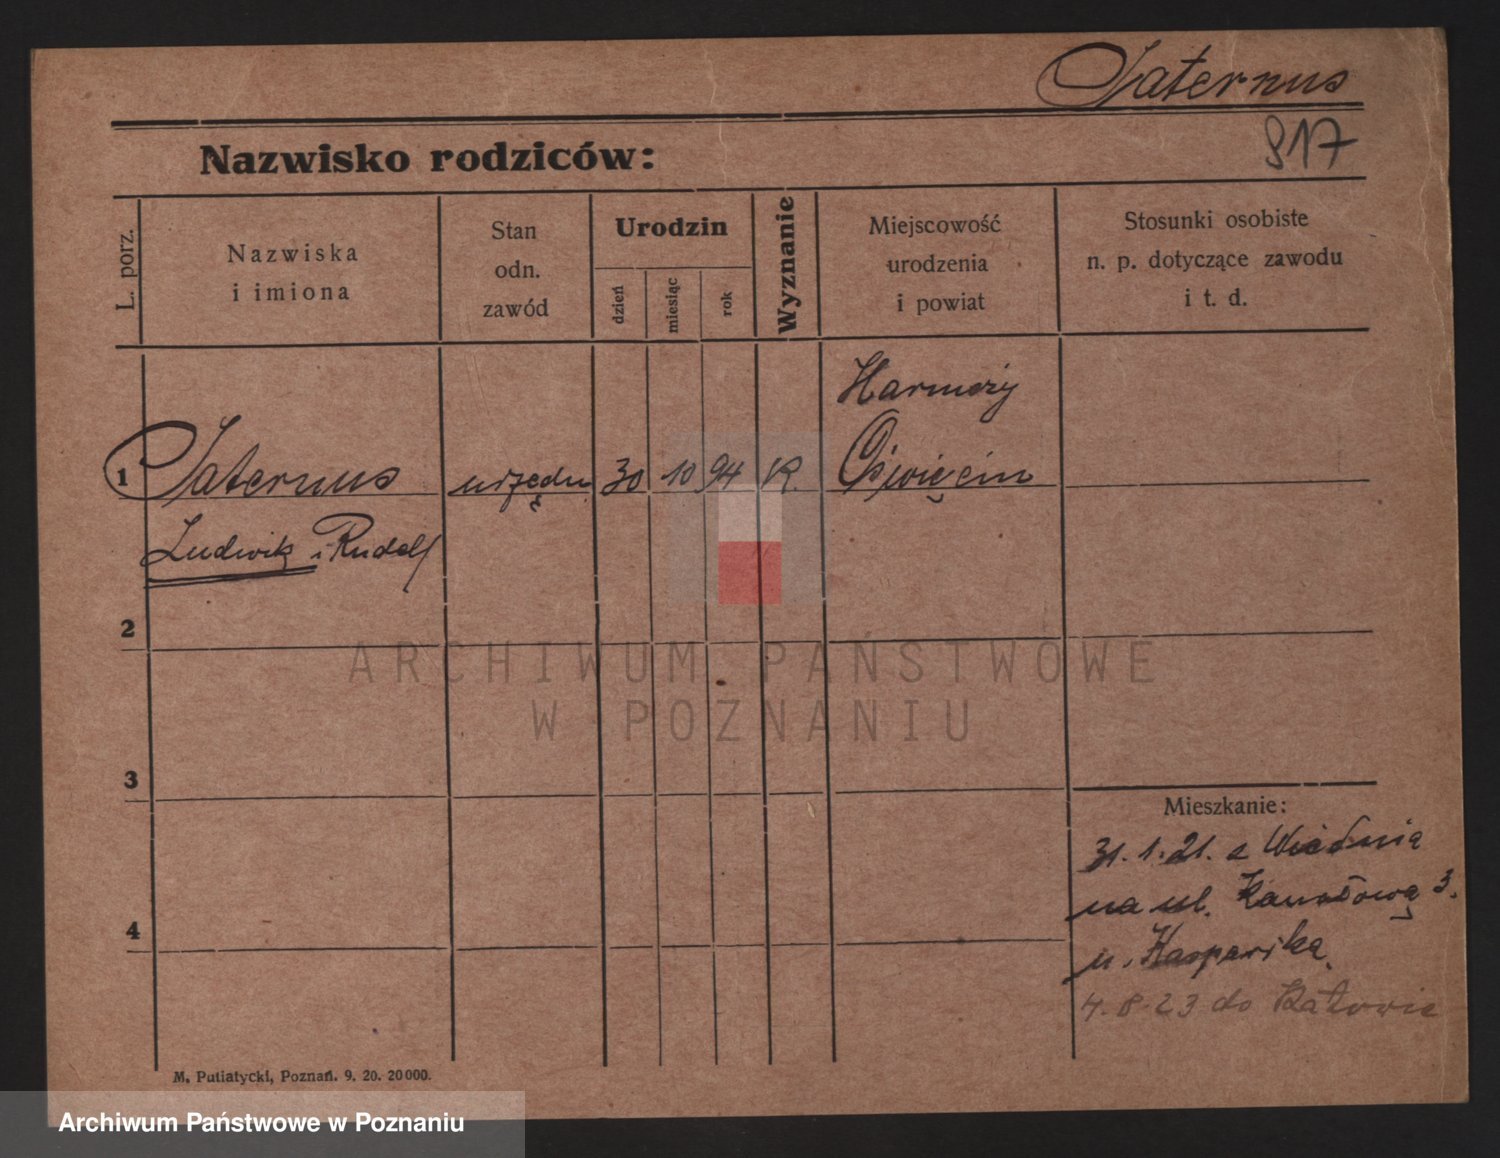 Saternus
917
Nazwisko rodziców:
L. porz.
Nazwiska
i imiona
Stan
odn.
zawód
Urodzin
dzień
miesiąc
rok
Wyznanie
Miejscowość
urodzenia
i powiat
Stosunki osobiste
n. p. dotyczące zawodu
i t. d.
Harmęży
1 Saternus urzędn. 30 10 94 K. Oświęcim
Ludwik i Rudolf
2
ARCHIWUM PAŃSTWOWE
W POZNANIU
3
Mieszkanie:
31. 1. 21. z Wiednia
na ul. Kanałową 3.
u. Kasparika
4
4. 8. 23 do Katowic
M. Putiatycki, Poznań. 9. 20. 20000.
Archiwum Państwowe w Poznaniu